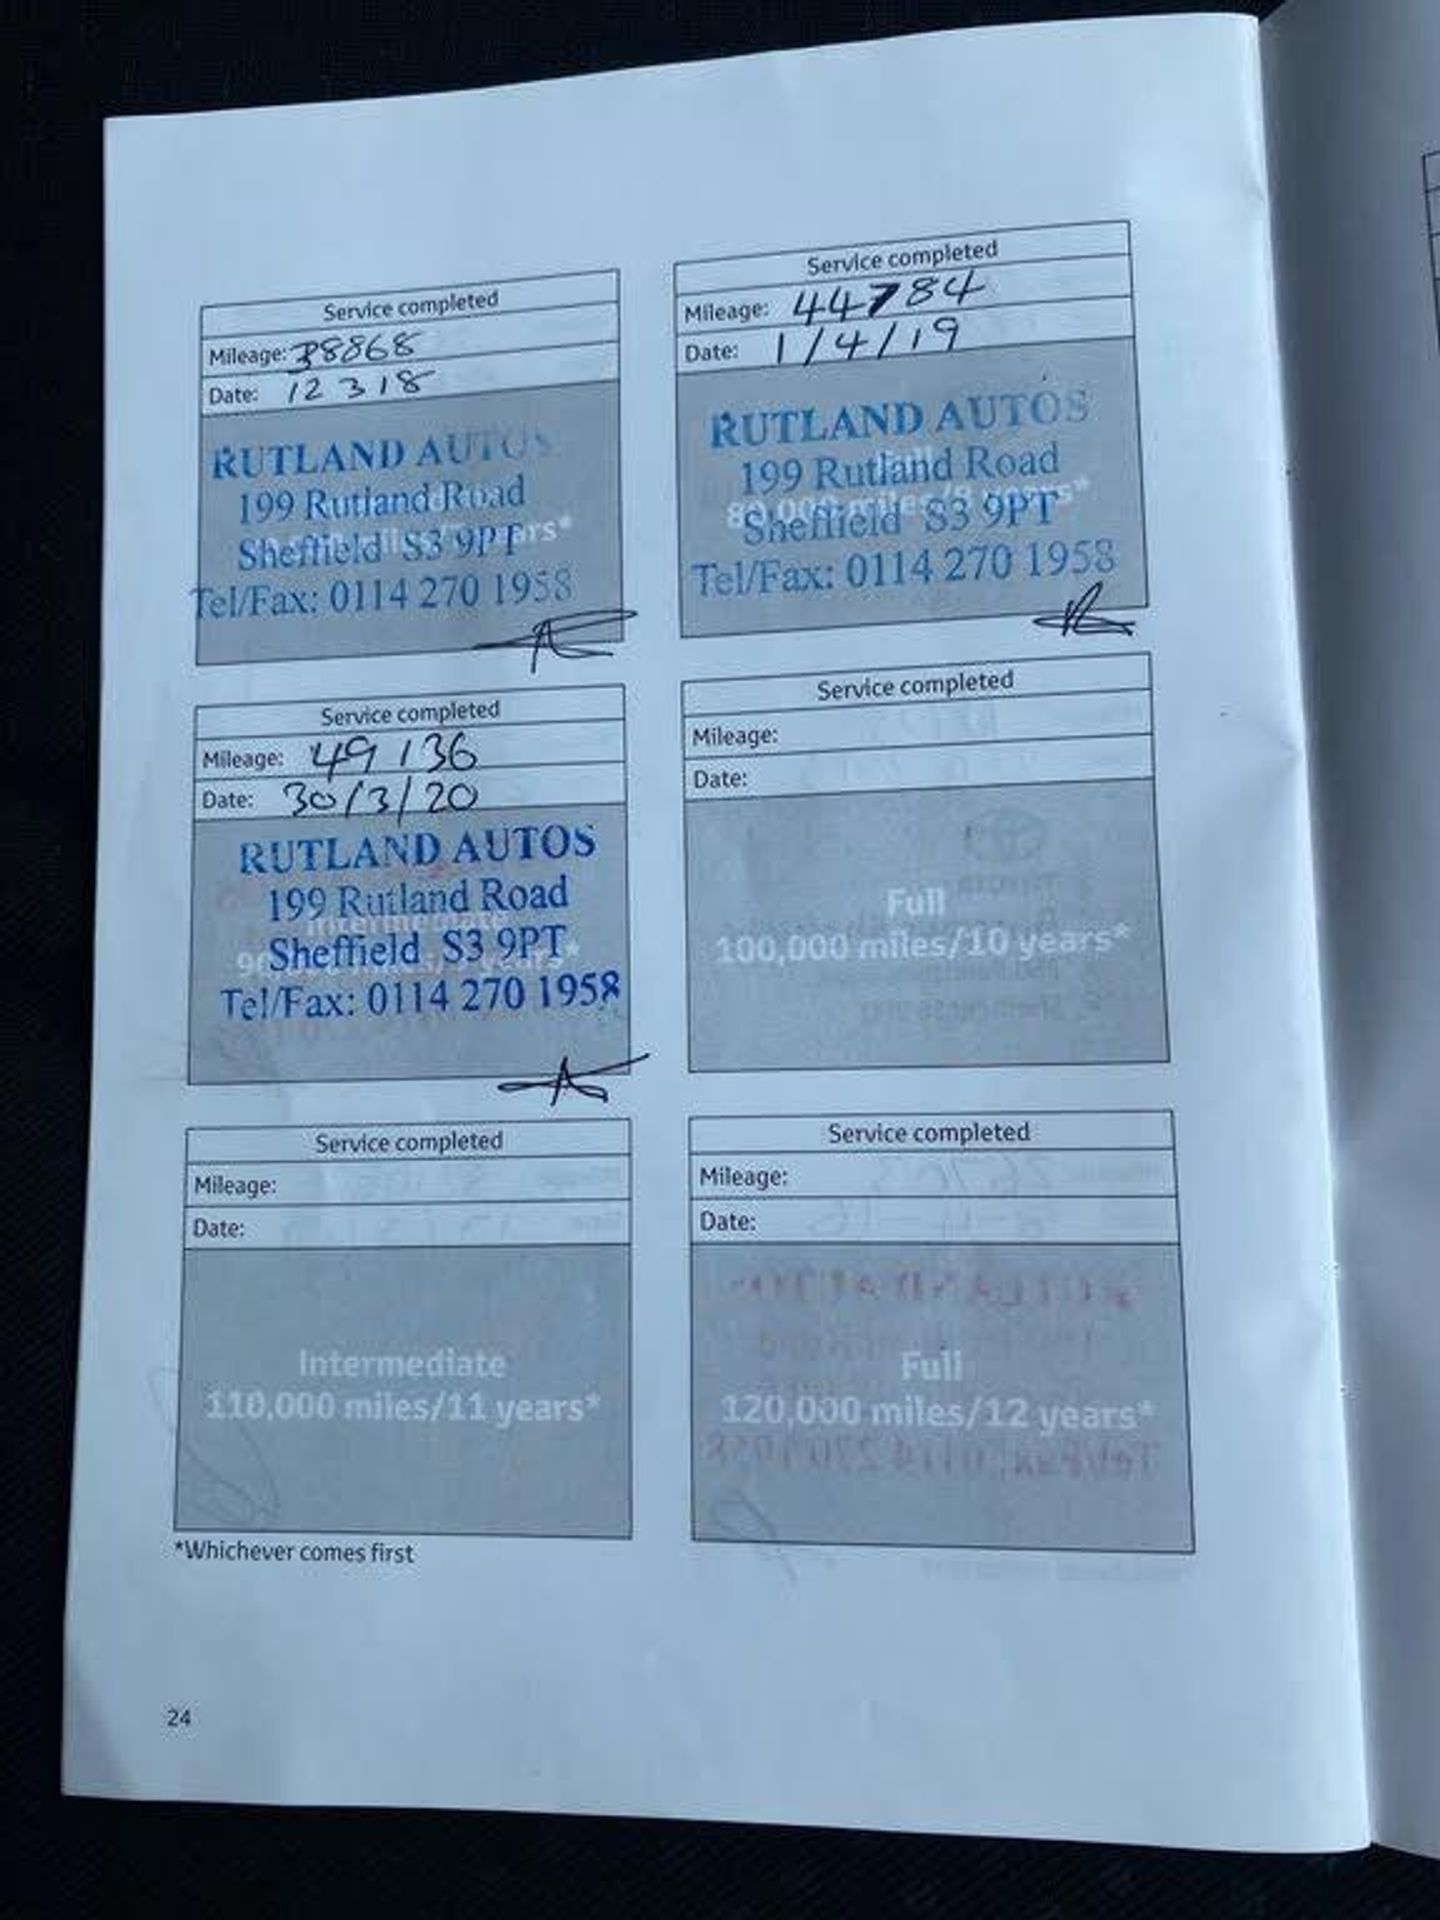 Service completed
Mileage: 38868
Date: 12 3 18
RUTLAND AUTOS
199 Rutland Road
Sheffield S3 9PT
Tel/Fax: 0114 270 1958
Service completed
Mileage: 44784
Date: 1/4/19
RUTLAND AUTOS
Full
199 Rutland Road
80,000 miles/8 years*
Sheffield S3 9PT
Tel/Fax: 0114 270 1958
Service completed
Mileage: 49136
Date: 30/3/20
RUTLAND AUTOS
199 Rutland Road
Intermediate
Sheffield S3 9PT
Tel/Fax: 0114 270 1958
Service completed
Mileage:
Date:
Full
100,000 miles/10 years*
Service completed
Mileage:
Date:
Intermediate
110,000 miles/11 years*
Service completed
Mileage:
Date:
Full
120,000 miles/12 years*
*Whichever comes first
24